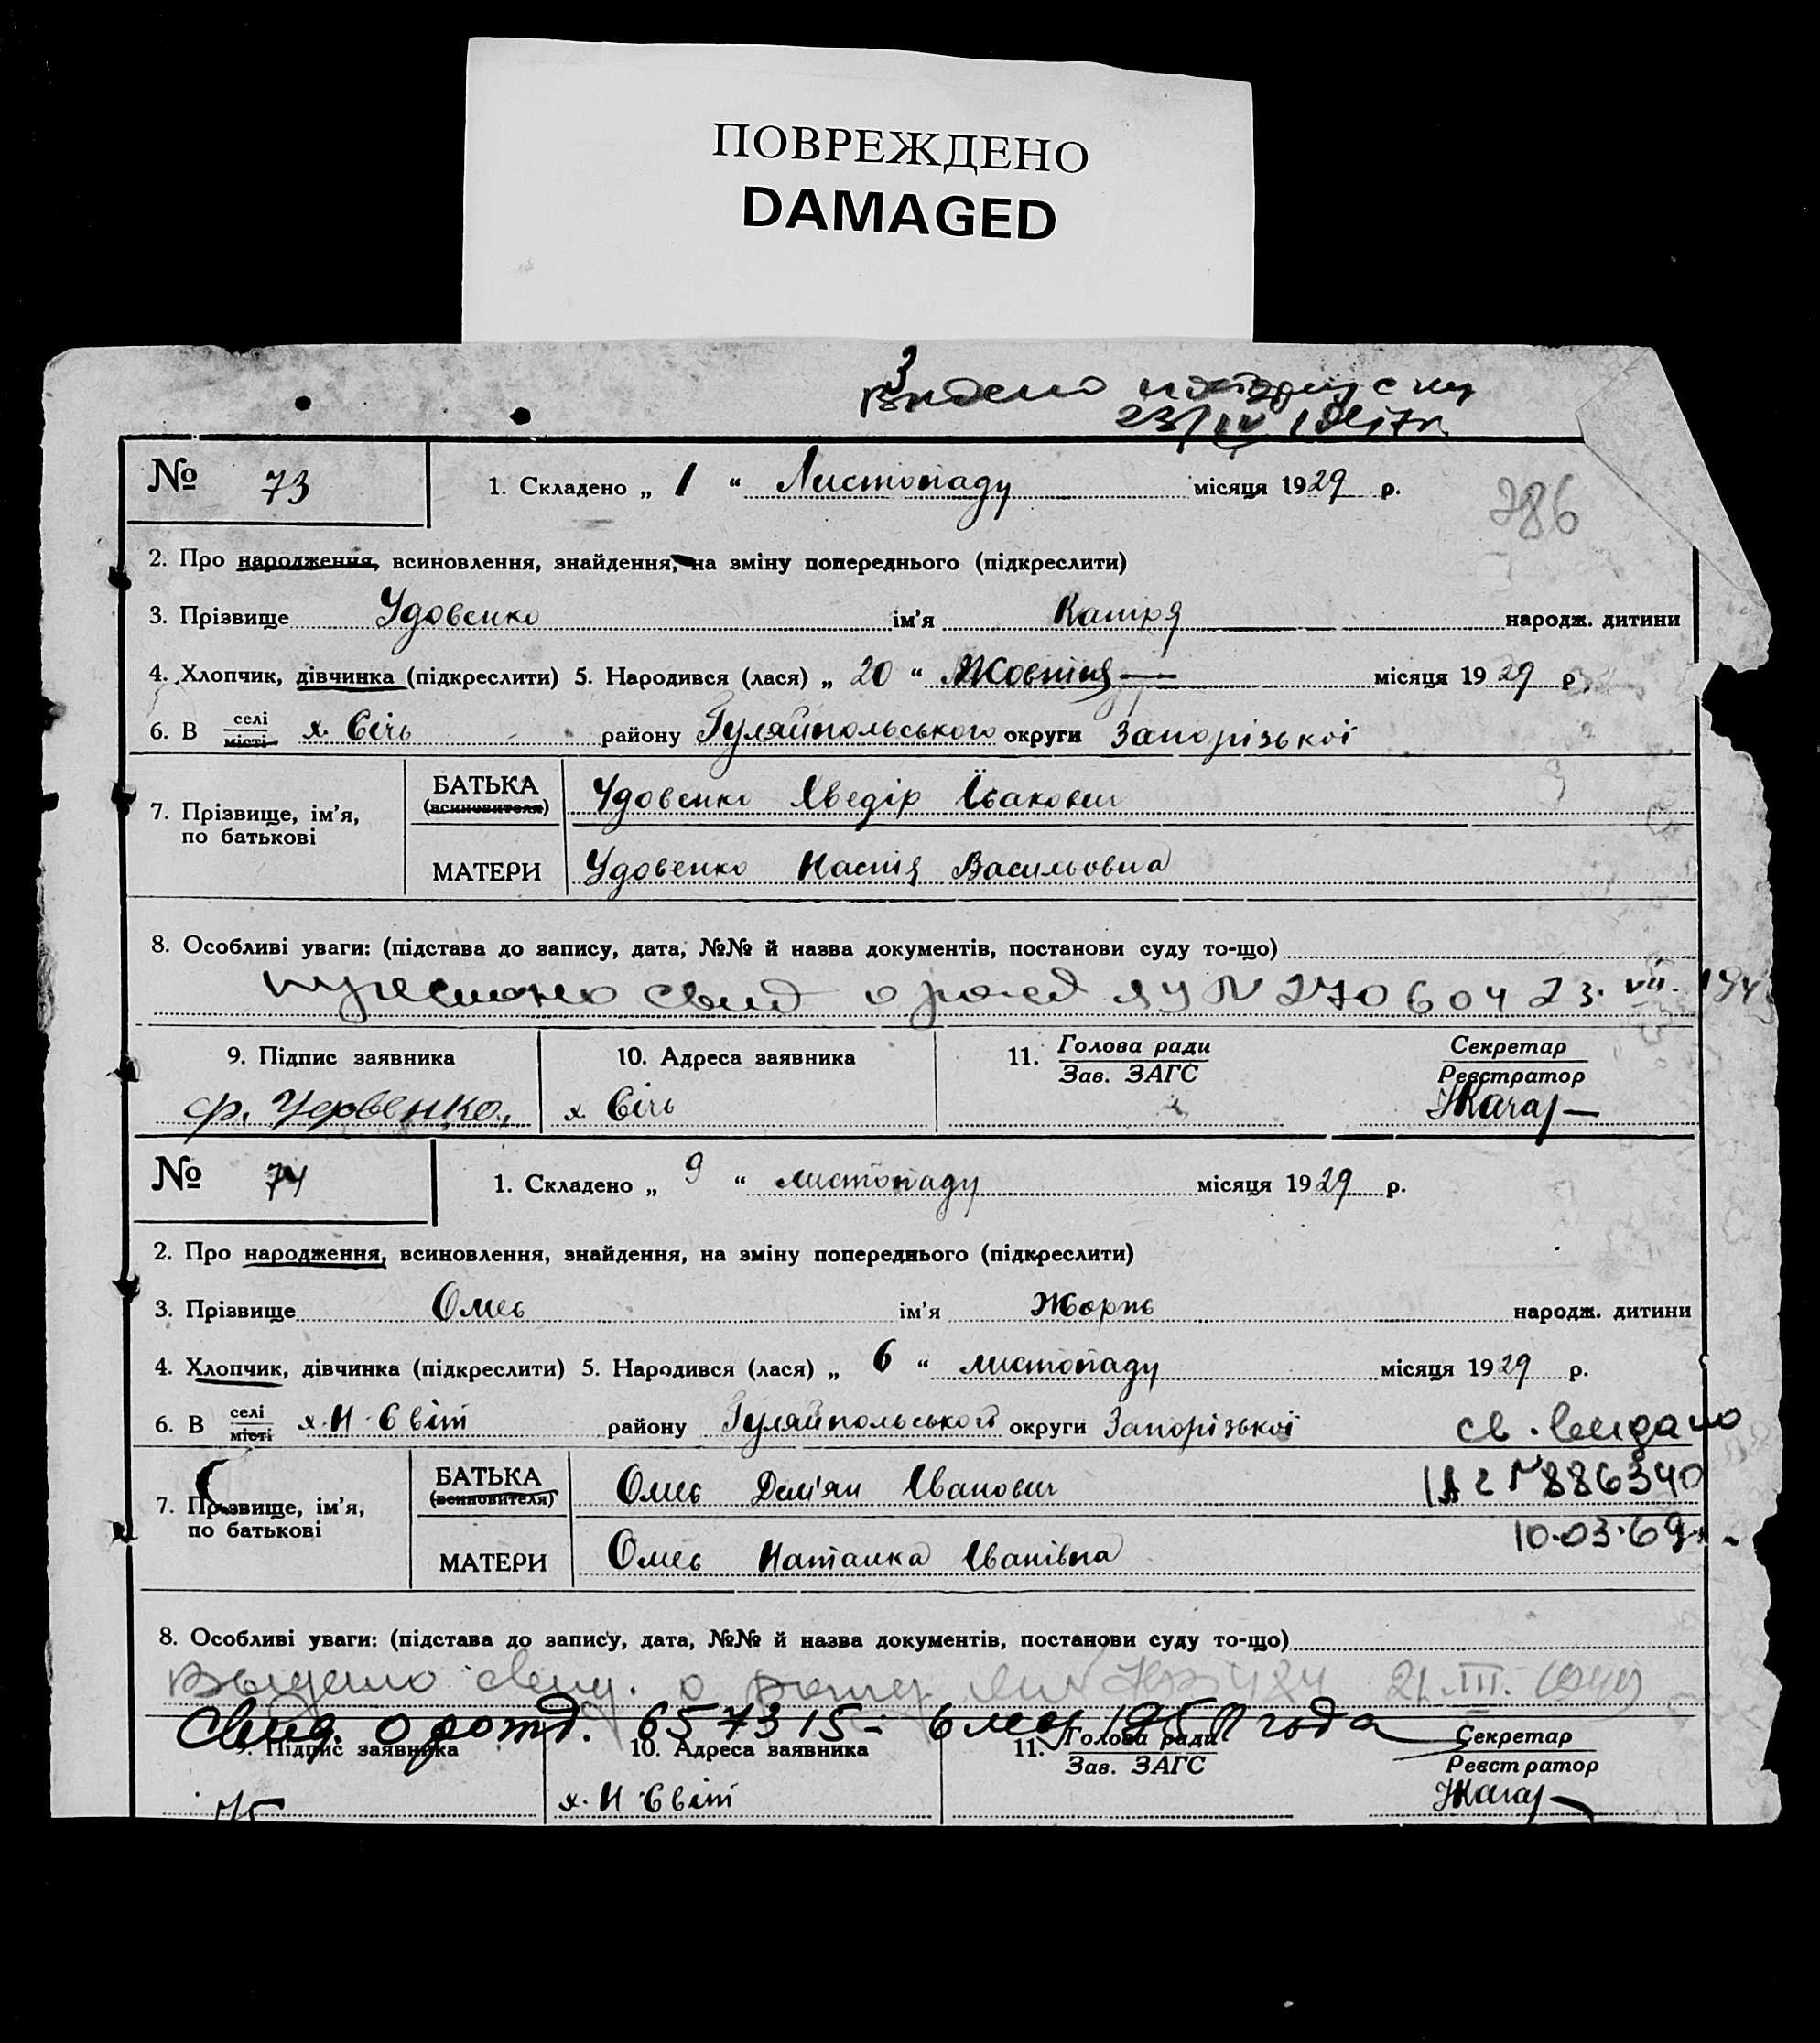 ПОВРЕЖДЕНО
DAMAGED
23/IV
№ 73
1. Складено „ 1 “ Листопаду місяця 1929 р.
786
2. Про народження, всиновлення, знайдення, на зміну попереднього (підкреслити)
3. Прізвище Удовенко ім'я Катря народж. дитини
4. Хлопчик, дівчинка (підкреслити) 5. Народився (лася) „ 20 “ Жовтня місяця 1929 р.
6. В селі місті х. Січь району Гуляйпольського округи Запорізької
7. Прізвище, ім'я, по батькові
БАТЬКА (всиновителя) Удовенко Хведір Ісакович
МАТЕРИ Удовенко Настя Васильовна
8. Особливі уваги: (підстава до запису, дата, №№ й назва документів, постанови суду то-що)
свид о рожд ЯУ N 270604 23. VII. 194
9. Підпис заявника
10. Адреса заявника
11. Голова ради Зав. ЗАГС
Секретар Реєстратор
х Січь
№ 74
1. Складено „ 9 “ листопаду місяця 1929 р.
2. Про народження, всиновлення, знайдення, на зміну попереднього (підкреслити)
3. Прізвище Омес ім'я Жорж народж. дитини
4. Хлопчик, дівчинка (підкреслити) 5. Народився (лася) „ 6 “ листопаду місяця 1929 р.
6. В селі місті х. Н. Світ району Гуляйпольського округи Запорізької
св. видано
N 886340
10.03.69
7. Прізвище, ім'я, по батькові
БАТЬКА (всиновителя) Омес Дем'ян Іванович
МАТЕРИ Омес Наталка Іванівна
8. Особливі уваги: (підстава до запису, дата, №№ й назва документів, постанови суду то-що)
Выдано свид. о 21. III.
Свид. о рожд. 657315 = 6 года
9. Підпис заявника
10. Адреса заявника
11. Голова ради Зав. ЗАГС
Секретар Реєстратор
х. Н Світ